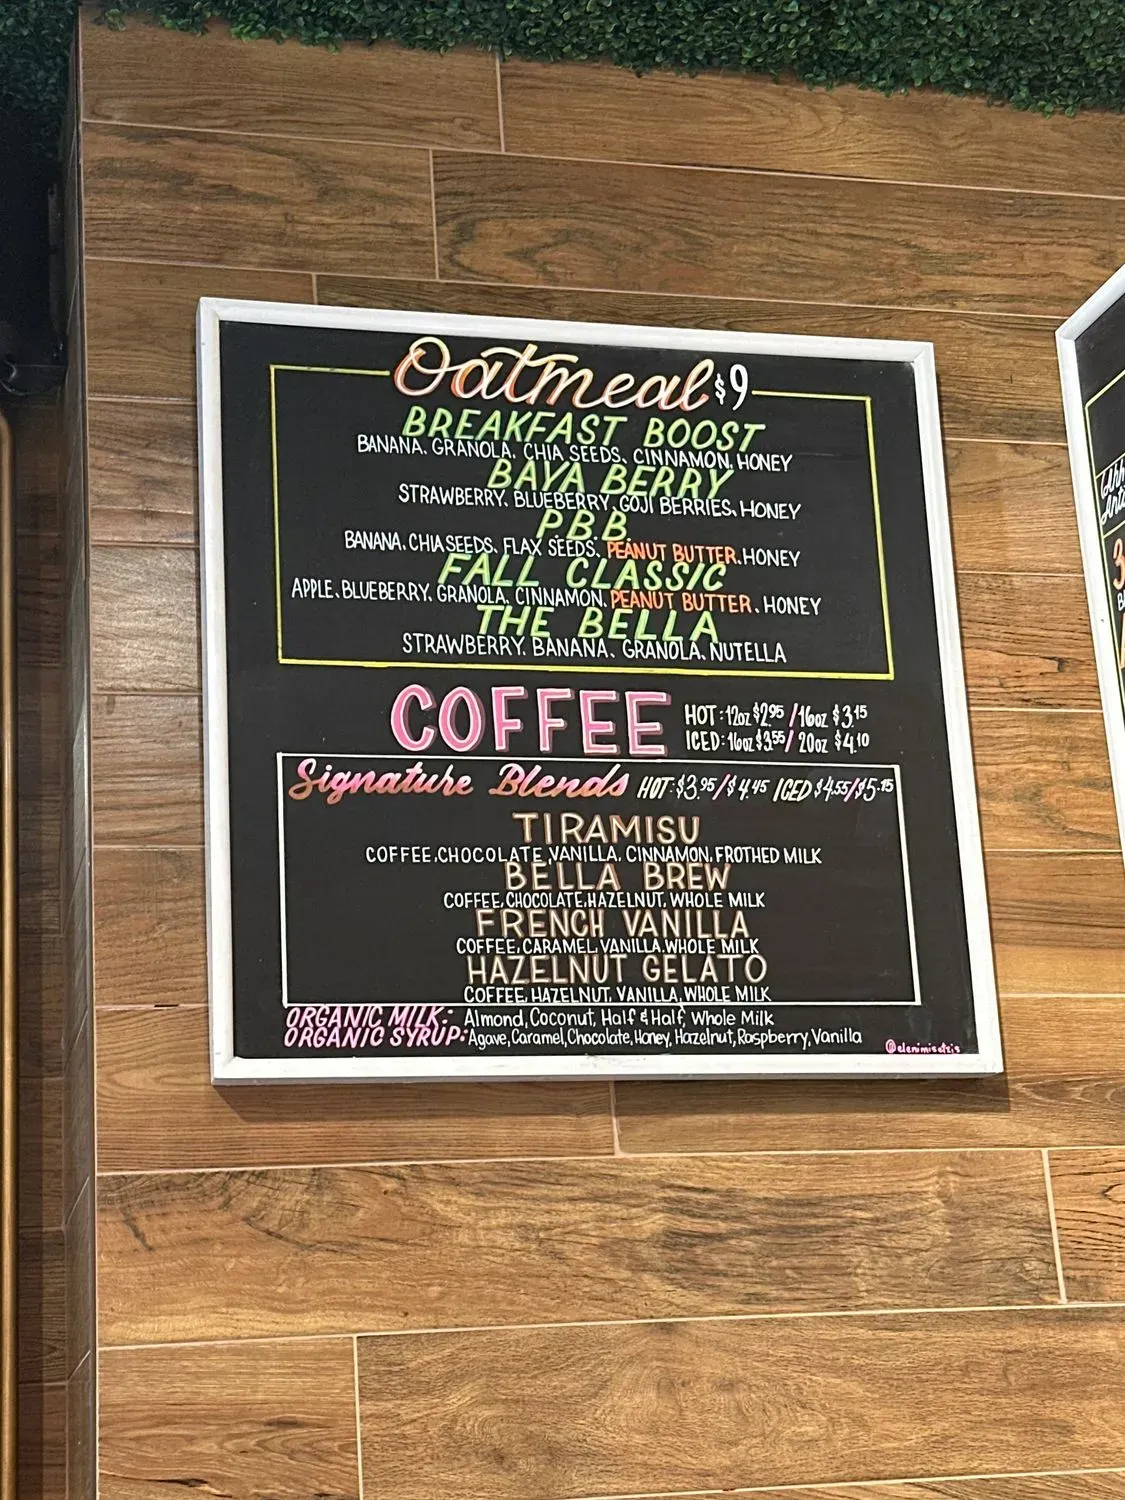 Oatmeal $9
BREAKFAST BOOST
BANANA. GRANOLA. CHIA SEEDS. CINNAMON. HONEY
BAYA BERRY
STRAWBERRY. BLUEBERRY. GOJI BERRIES. HONEY
P.B.B.
BANANA. CHIA SEEDS. FLAX SEEDS. PEANUT BUTTER. HONEY
FALL CLASSIC
APPLE. BLUEBERRY. GRANOLA. CINNAMON. PEANUT BUTTER. HONEY
THE BELLA
STRAWBERRY. BANANA. GRANOLA. NUTELLA
COFFEE
HOT: 12oz $2.95 / 16oz $3.15
ICED: 16oz $3.55 / 20oz $4.10
Signature Blends HOT: $3.95/$4.45 ICED $4.55/$5.15
TIRAMISU
COFFEE, CHOCOLATE, VANILLA, CINNAMON, FROTHED MILK
BELLA BREW
COFFEE, CHOCOLATE, HAZELNUT, WHOLE MILK
FRENCH VANILLA
COFFEE, CARAMEL, VANILLA, WHOLE MILK
HAZELNUT GELATO
COFFEE, HAZELNUT, VANILLA, WHOLE MILK
ORGANIC MILK: Almond, Coconut, Half & Half, Whole Milk
ORGANIC SYRUP: Agave, Caramel, Chocolate, Honey, Hazelnut, Raspberry, Vanilla
@elenimisetzis